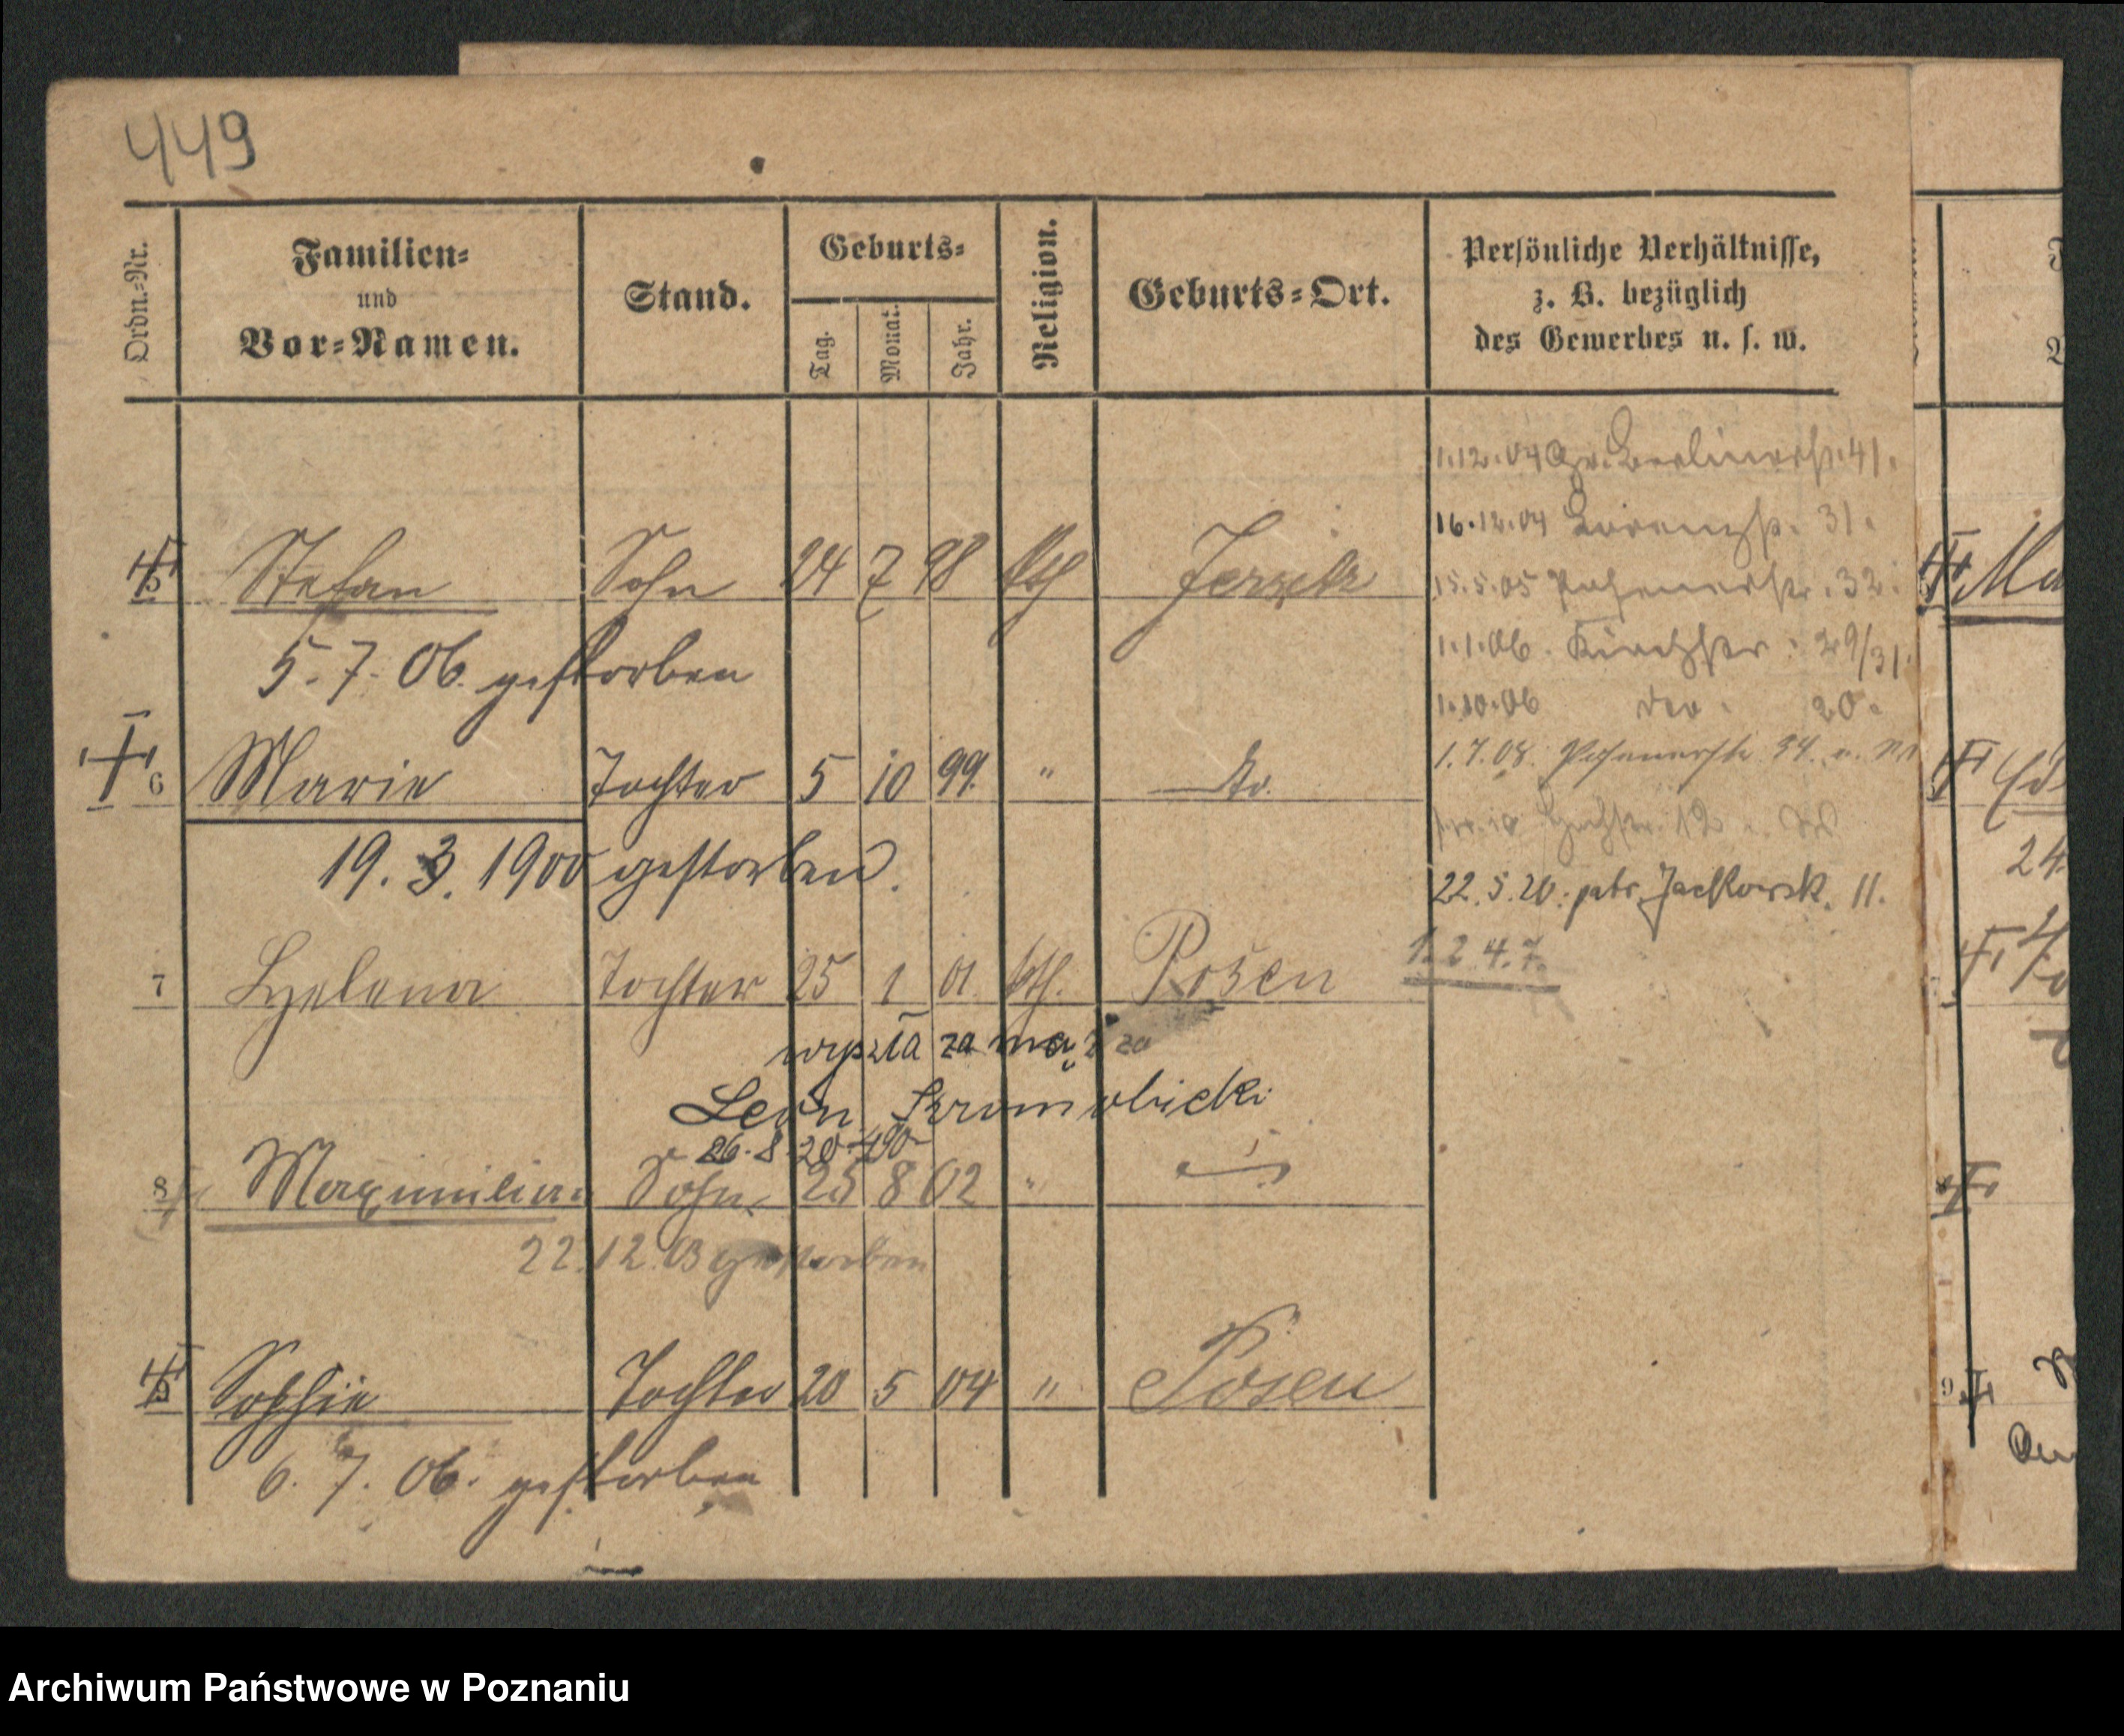 449
Ordn.-Nr.
Familien-
und
Vor-Namen.
Stand.
Geburts-
Tag.
Monat.
Jahr.
Religion.
Geburts-Ort.
Persönliche Verhältnisse,
z. B. bezüglich
des Gewerbes u. s. w.
1.12.04 Gr. Berlinerstr. 41.
16.12.04 Lorenzstr. 31.
5 Stefan Sohn 24 7 98 kth Jersitz
15.5.05 Posenerstr. 32.
5.7.06. gestorben
1.1.06. Kirchstr. 29/31.
1.10.06 20.
6 Marie Tochter 5 10 99. " do.
1.7.08. Posenerstr. 34.
19.3.1900 gestorben.
22.5.20. Jackowsk. 11.
7 Helena Tochter 25 1 01 kth. Posen
1. 2 4. 7.
wyszła za mąż za
Leon
26.8.20
8 Maximilian Sohn 25 8 02 "
22.12.03 gestorben
9 Sophie Tochter 20 5 04 " Posen
6.7.06. gestorben
24
9
Archiwum Państwowe w Poznaniu